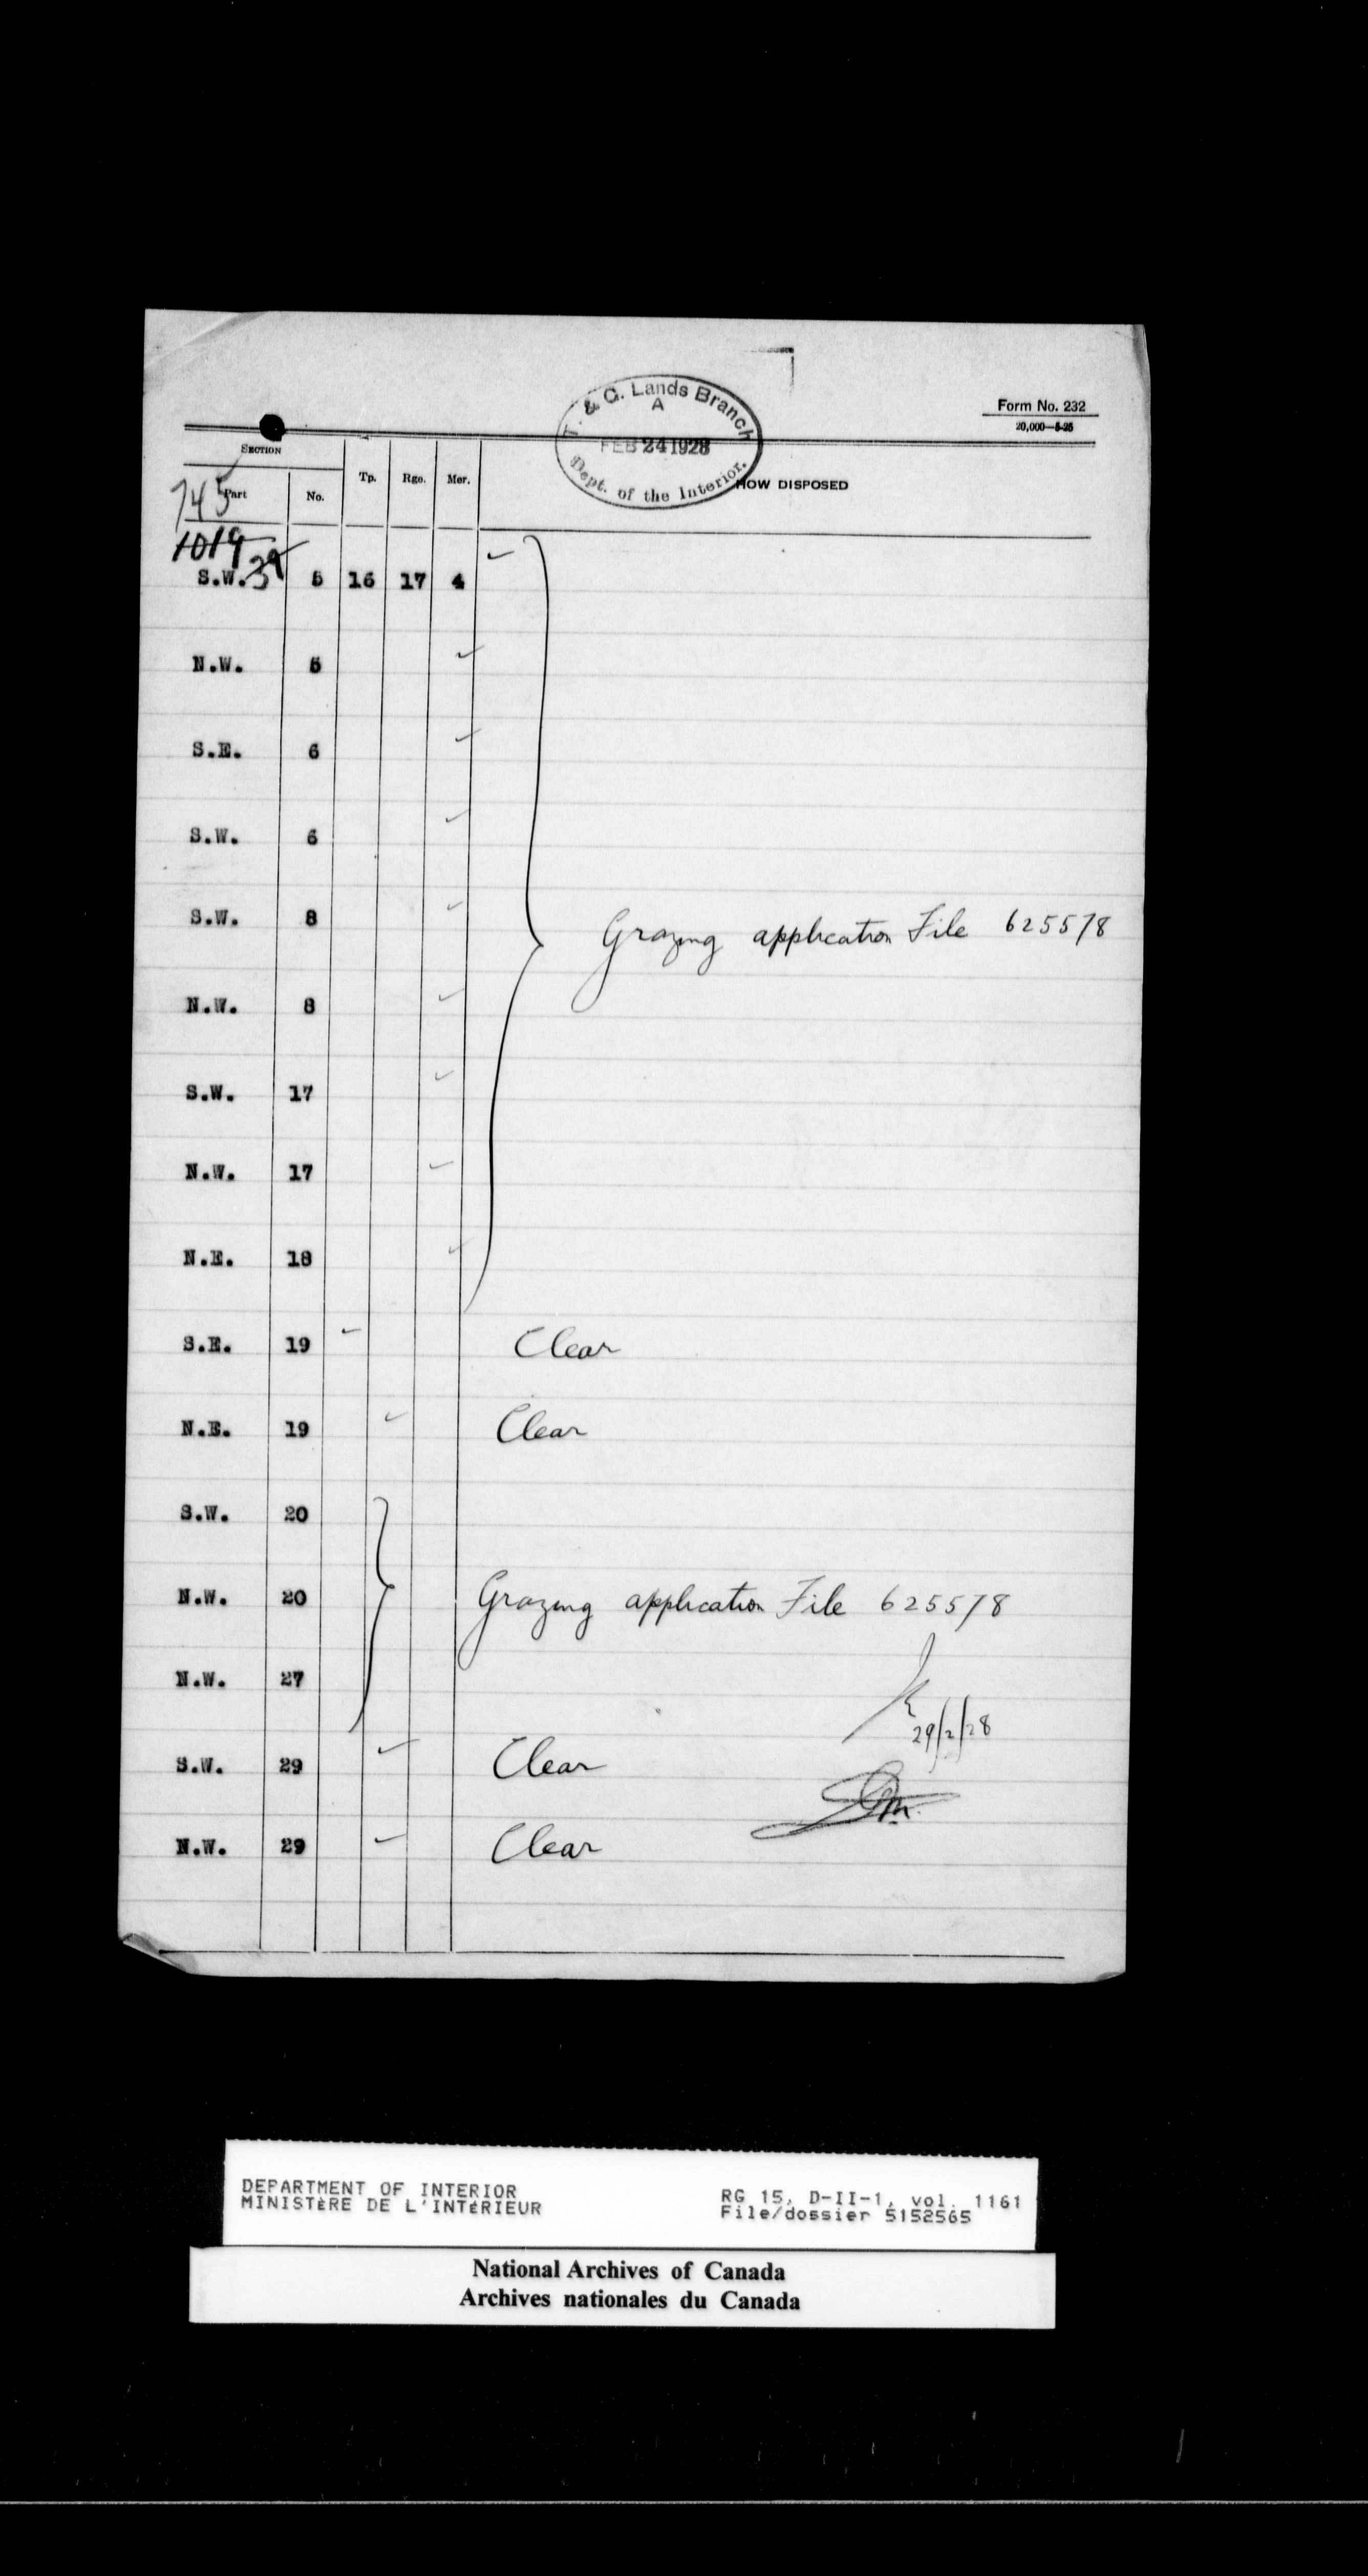 T. & G. Lands Branch
A
FEB 24 1928
Dept. of the Interior.
Form No. 232
20,000—5-25
SECTION
Tp.
Rge.
Mer.
HOW DISPOSED
745
Part
No.
1019
39
S.W. 5 16 17 4
N.W. 5
S.E. 6
S.W. 6
S.W. 8
Grazing application File 625578
N.W. 8
S.W. 17
N.W. 17
N.E. 18
S.E. 19 Clear
N.E. 19 Clear
S.W. 20
N.W. 20 Grazing application File 625578
N.W. 27
29/2/28
S.W. 29 Clear
N.W. 29 Clear
DEPARTMENT OF INTERIOR
MINISTÈRE DE L'INTÉRIEUR
RG 15, D-II-1, vol. 1161
File/dossier 5152565
National Archives of Canada
Archives nationales du Canada